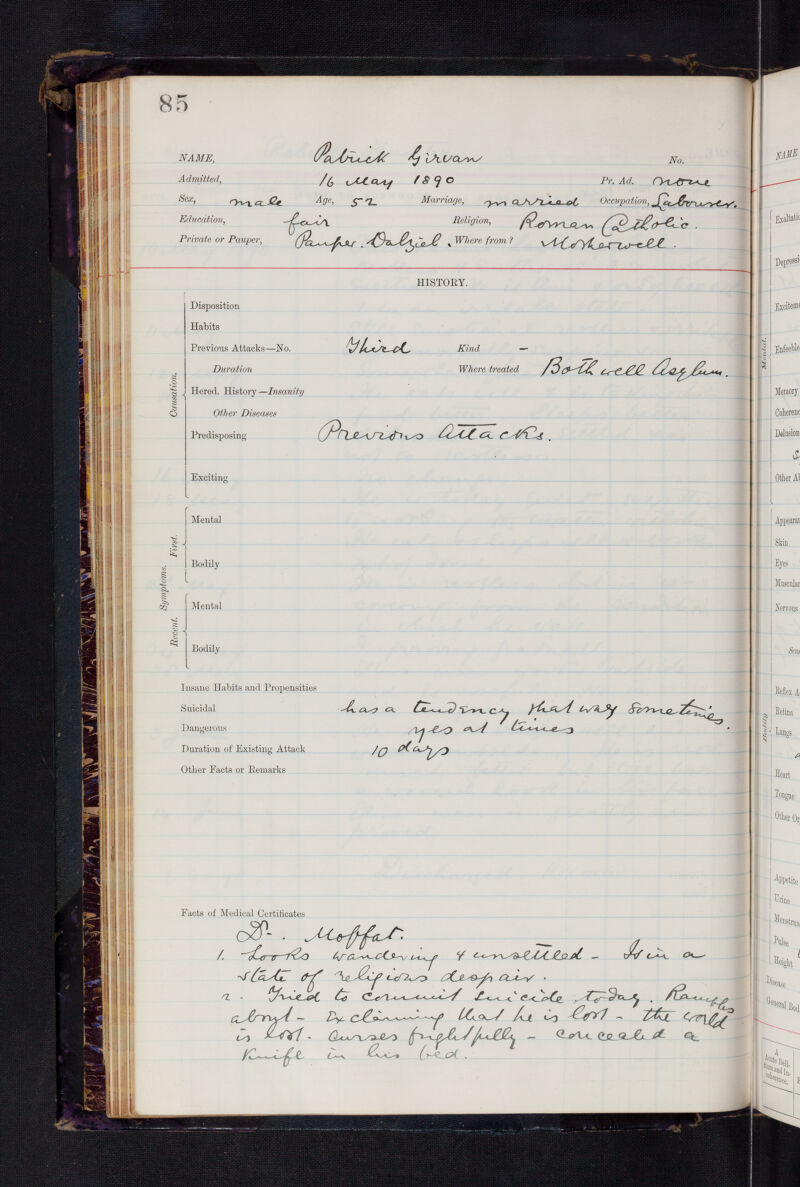 85
NAME, Patrick Girvan No.
Admitted, 16 May 1890 Pr. Ad. none
Sex, male Age, 52 Marriage, married Occupation, Labourer.
Education, fair Religion, Roman Catholic.
Private or Pauper, Pauper. Dalziel. Where from? Motherwell.
HISTORY.
Causation.
Disposition
Habits
Previous Attacks—No. Third Kind –
Duration Where treated Bothwell Asylum.
Hered. History—Insanity
Other Diseases
Predisposing Previous Attacks.
Exciting
Symptoms.
First.
Mental
Bodily
Recent.
Mental
Bodily
Insane Habits and Propensities
Suicidal has a tendency that way sometimes.
Dangerous yes at times
Duration of Existing Attack 10 days
Other Facts or Remarks
Facts of Medical Certificates
Dr. Moffat.
1. Looks wandering & unsettled – Is in a
state of religious despair.
2. Tried to commit suicide today. Rambles
about – Exclaiming that he is lost – the world
is lost. Curses frightfully – concealed a
Knife in his bed.
NAME
Mental.
Exaltatio
Depressi
Exciteme
Enfeeble
Memory
Coherenc
Delusion
Other A
Appearan
Skin
Eyes
Muscular
Nervous
Reflex A
Retina
Bodily
Lungs
Heart
Tongue
Other Or
Appetite
Urine
Menstrua
Pulse
Height
Disease
General Bod
A
Acute Deli-
rium and In-
coherence.